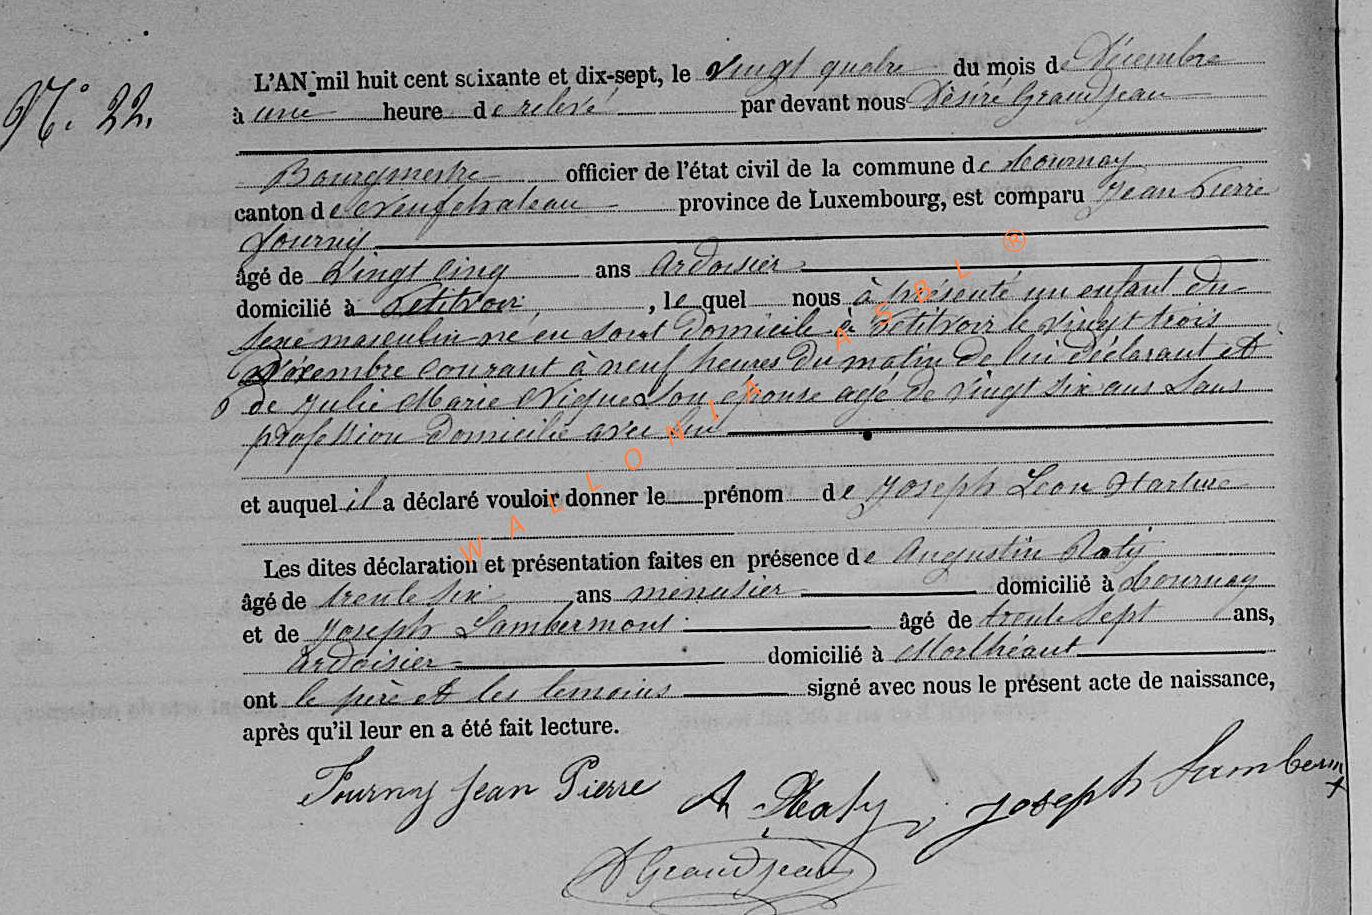 N.° 22.
L'AN mil huit cent soixante et dix-sept, le vingt quatre du mois de Décembre
à une heure de relevé par devant nous Désiré Grandjean
Bourgmestre officier de l'état civil de la commune de Tournay
canton de Neufchateau province de Luxembourg, est comparu Jean Pierre
Fourny
âgé de Vingt Cinq ans Ardoisier
domicilié à Petitvoir, lequel nous à présenté un enfant du
sexe masculin né en son domicile à Petitvoir le vingt trois
Décembre courant à neuf heures du matin de lui déclarant et
de Julie Marie Nique son épouse agé de vingt six ans Sans
profession domicilié avec lui
et auquel il a déclaré vouloir donner le prénom de Joseph Léon
Les dites déclaration et présentation faites en présence de Augustin Raty
âgé de trente six ans menusier domicilié à Tournay
et de Joseph Lambermont âgé de trente sept ans,
ardoisier domicilié à
ont le père et les temoins signé avec nous le présent acte de naissance,
après qu'il leur en a été fait lecture.
Fourny Jean Pierre A Raty Joseph Lamberm
D Grandjean
WALLONIA ASBL ®